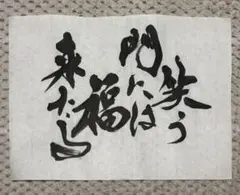 笑う
門には
福
来たる